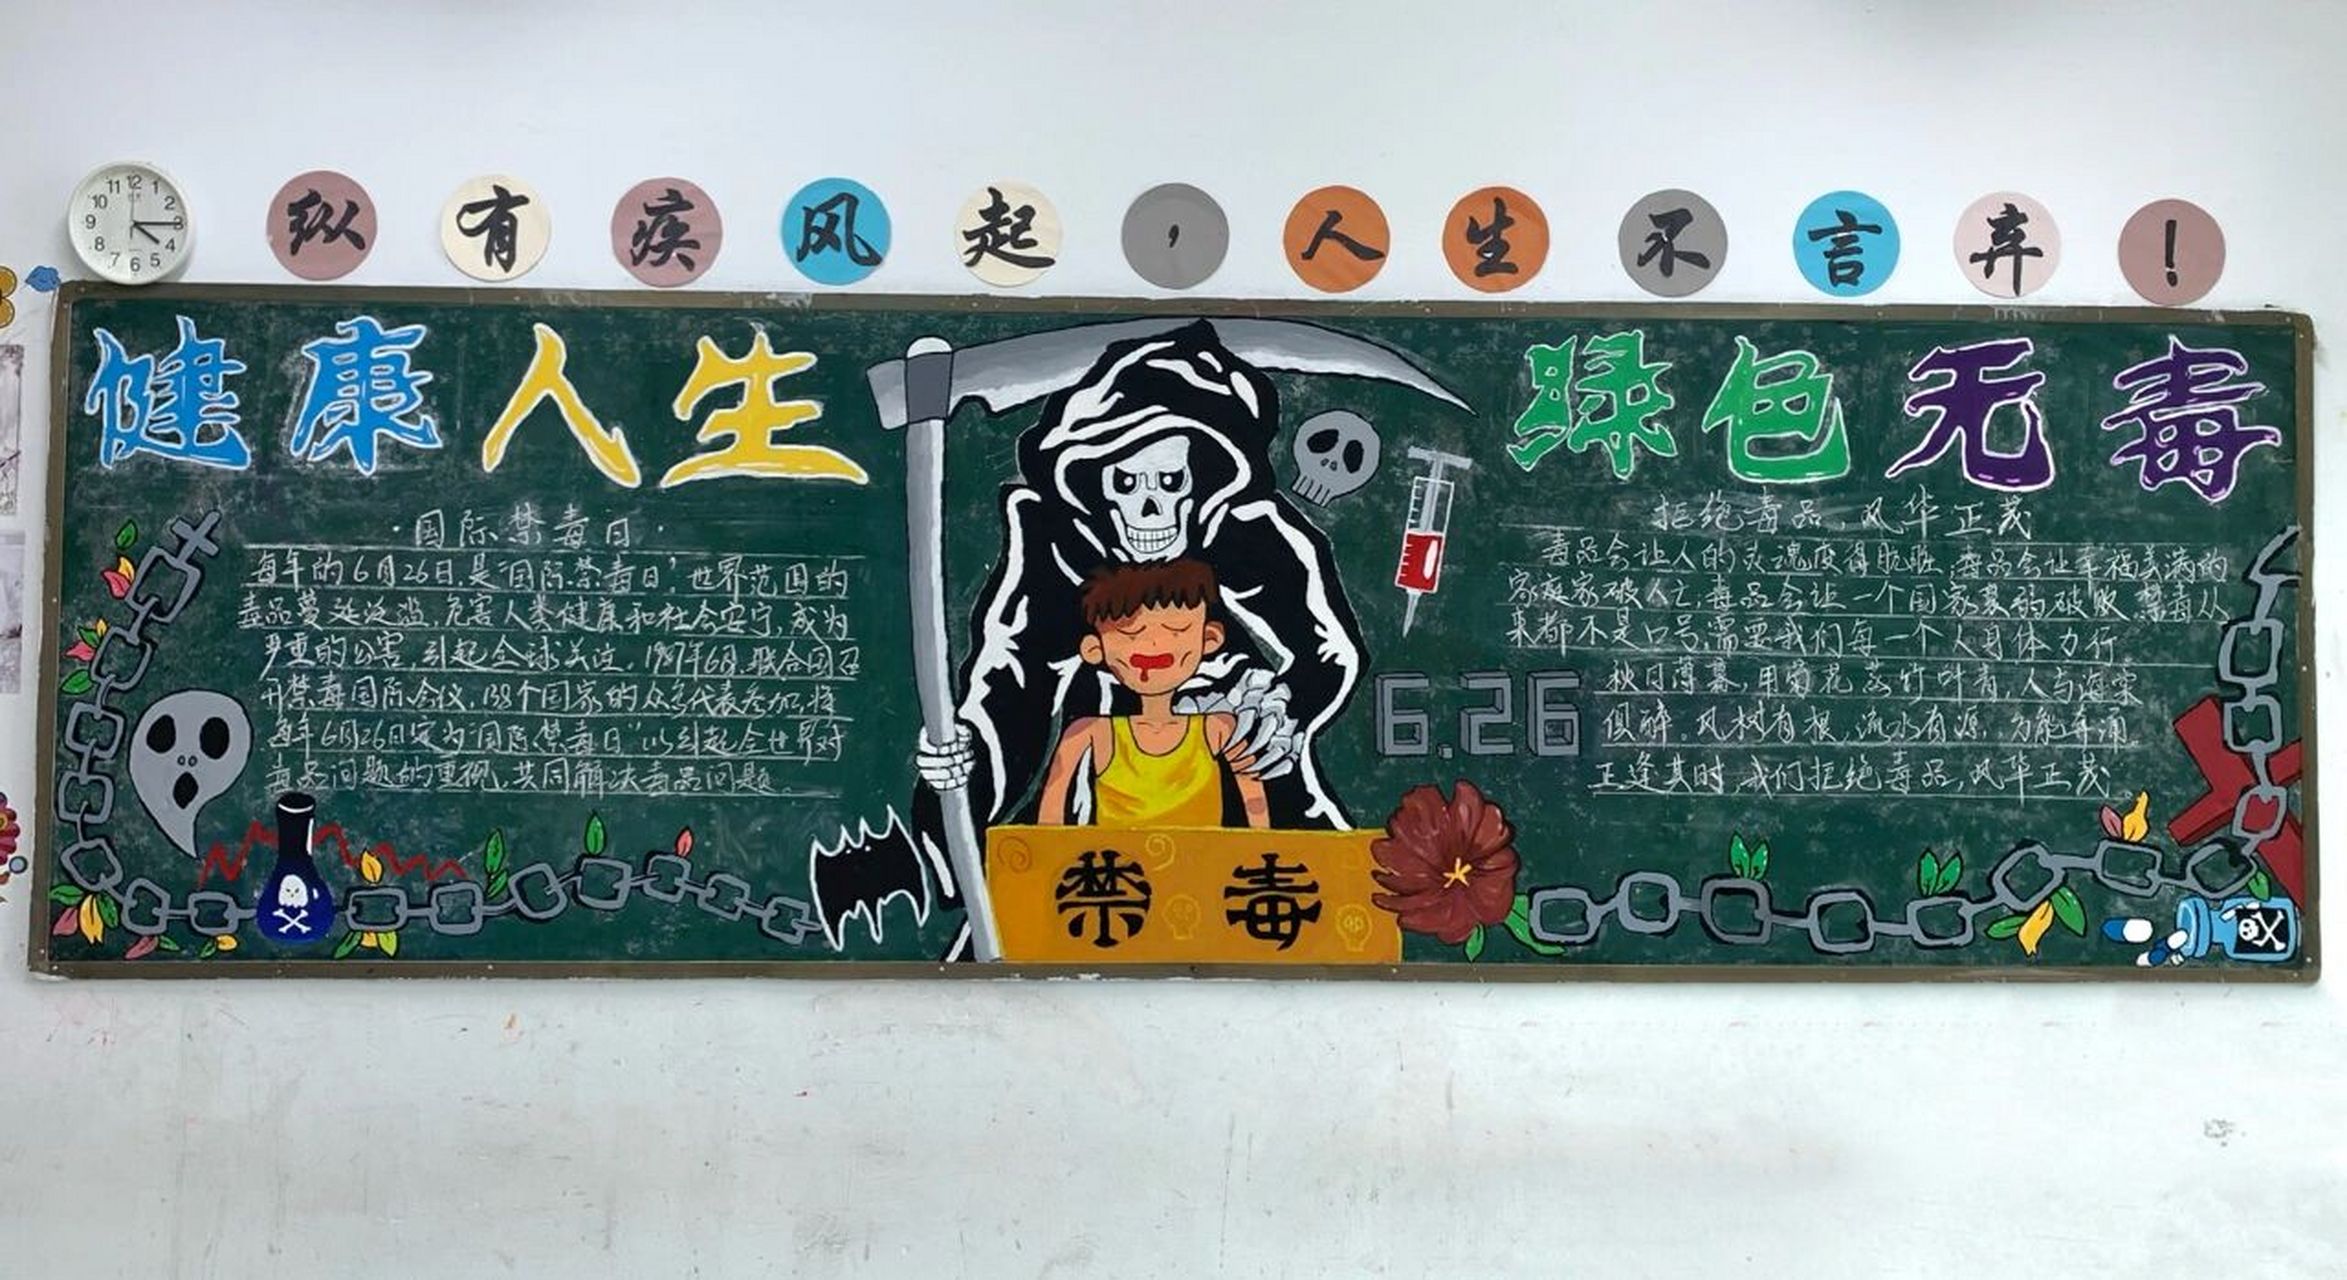 纵有疾风起，人生不言弃！
健康人生
绿色无毒
·国际禁毒日·
每年的6月26日,是"国际禁毒日",世界范围的
毒品蔓延泛滥,危害人类健康和社会安宁,成为
严重的公害,引起全球关注,1987年6月,联合国召
开禁毒国际会议,138个国家的众多代表参加,将
每年6月26日定为"国际禁毒日"以引起全世界对
毒品问题的重视,共同解决毒品问题。
6.26
禁毒
拒绝毒品,风华正茂
毒品会让人的灵魂变得肮脏,毒品会让幸福美满的
家庭家破人亡,毒品会让一个国家衰弱破败,禁毒从
来都不是口号,需要我们每一个人身体力行
秋日薄暮,用菊花煮竹叶青,人与海棠
俱醉。风树有根,流水有源,方能奔涌。
正逢其时,我们拒绝毒品,风华正茂
12
1
2
3
4
5
6
7
8
9
10
11